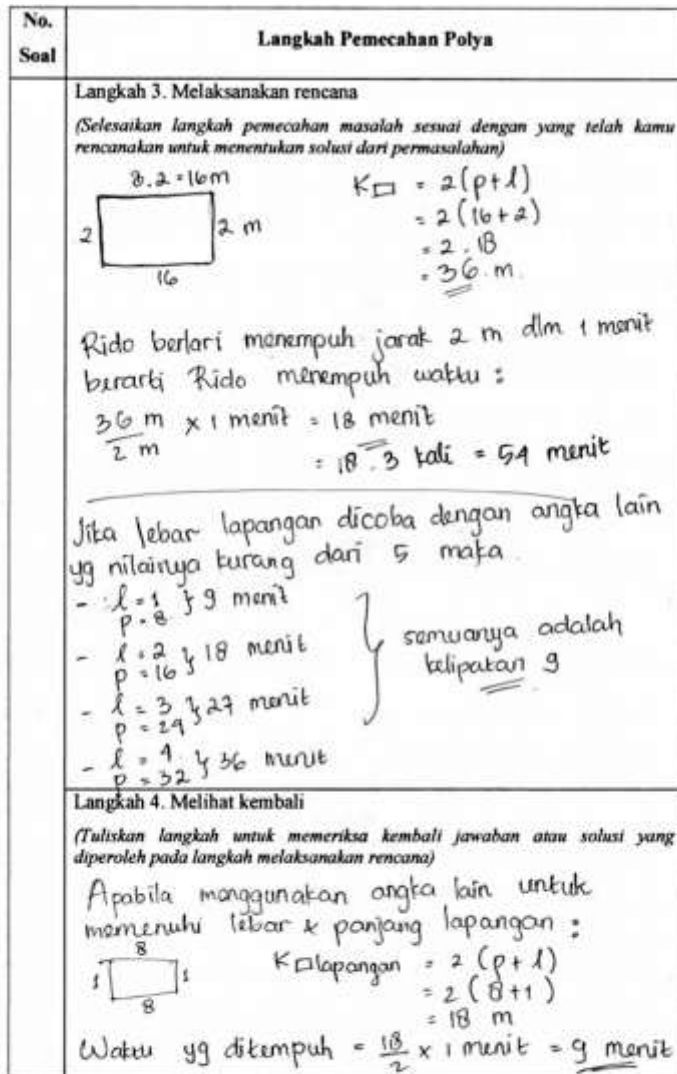 No. Soal
Langkah Pemecahan Polya
Langkah 3. Melaksanakan rencana
(Selesaikan langkah pemecahan masalah sesuai dengan yang telah kamu
rencanakan untuk menentukan solusi dari permasalahan)
8.2=16m
2
2 m
16
K▭ = 2(p+l)
= 2(16+2)
= 2.18
= 36.m.
Rido berlari menempuh jarak 2 m dlm 1 menit
berarti Rido menempuh waktu :
36 m / 2 m × 1 menit = 18 menit
= 18.3 kali = 54 menit
Jika lebar lapangan dicoba dengan angka lain
yg nilainya kurang dari 5 maka.
- l=1 p=8 } 9 menit
- l=2 p=16 } 18 menit
- l=3 p=24 } 27 menit
- l=4 p=32 } 36 menit
} semuanya adalah
kelipatan 9
Langkah 4. Melihat kembali
(Tuliskan langkah untuk memeriksa kembali jawaban atau solusi yang
diperoleh pada langkah melaksanakan rencana)
Apabila menggunakan angka lain untuk
memenuhi lebar & panjang lapangan :
8
1
1
8
K▭lapangan = 2 (p+l)
= 2 (8+1)
= 18 m
Waktu yg ditempuh = 18/2 × 1 menit = 9 menit